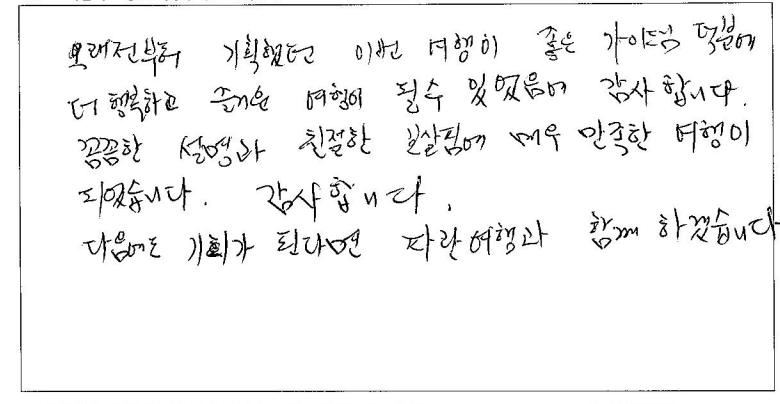 오래전부터 기획했던 이번 여행이 좋은 가이드님 덕분에
더 행복하고 즐거운 여행이 될수 있었음에 감사 합니다.
꼼꼼한 설명과 친절한 보살핌에 매우 만족한 여행이
되었습니다. 감사합니다.
다음에도 기회가 된다면 파란여행과 함께 하겠습니다